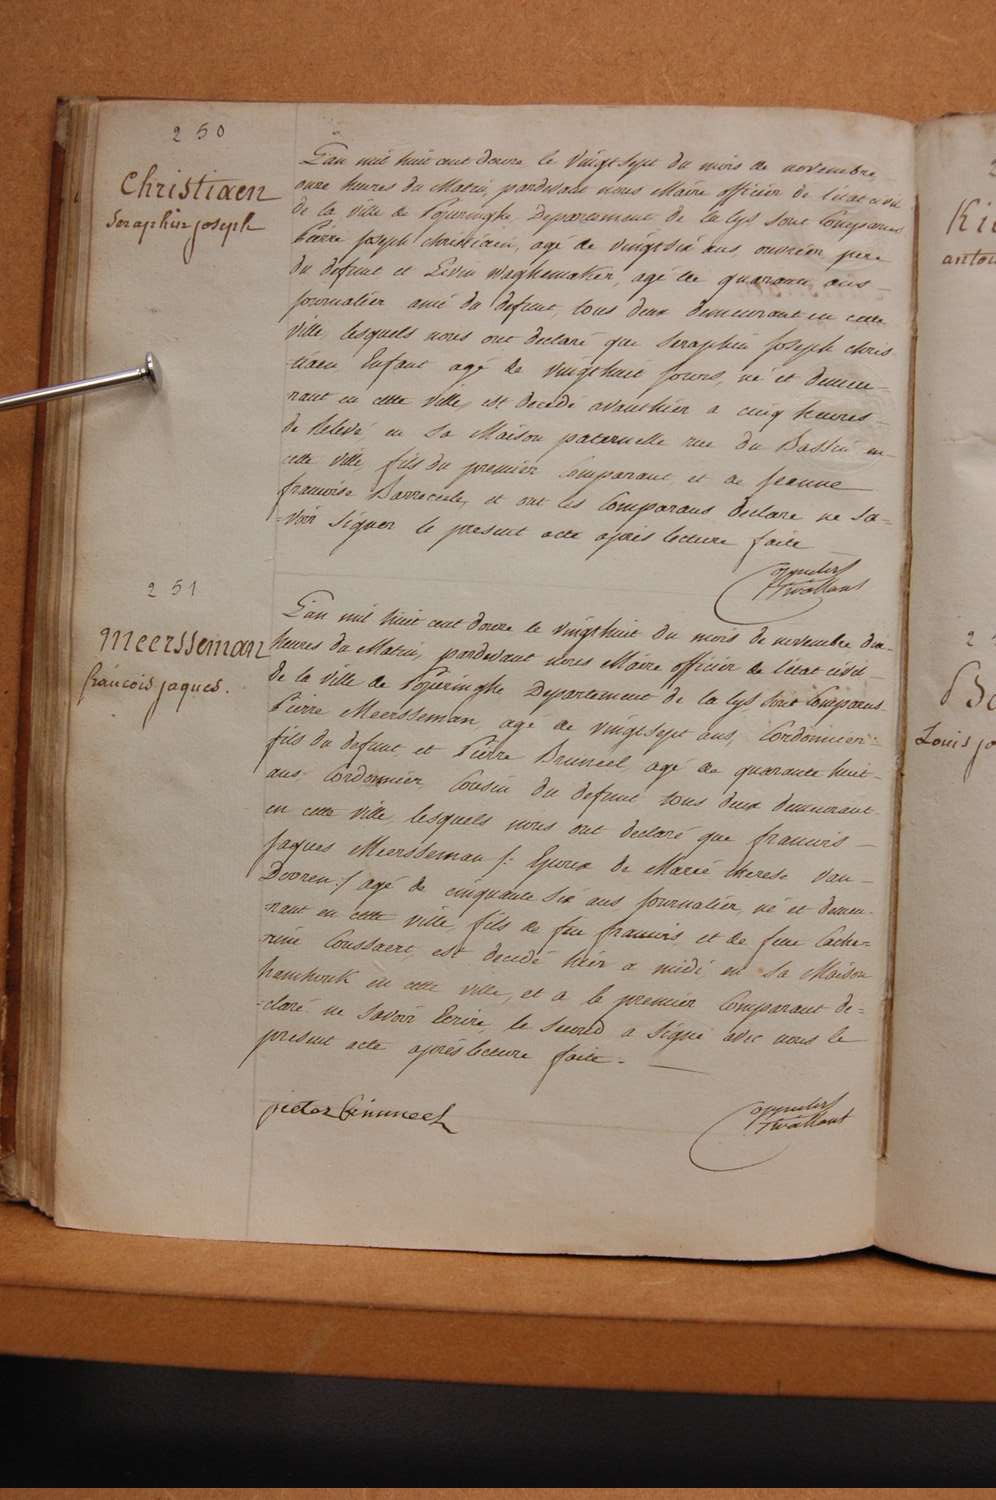 250
Christiaen
Seraphin joseph
L'an mil huit cent douze le vingt sept du mois de novembre,
onze heures du Matin, pardevant nous Maire officier de l'etat civil
de la ville de Poperinghe, Departement de la lys, sont Comparus
Pierre Joseph christiaen, agé de vingt six ans, ouvrier, pere
du defunt et Livin waghemaker, agé de quarante ans
journalier ami du defunt, tous deux demeurant en cette
ville, lesquels nous ont declaré que Seraphin Joseph chris-
tiaen Enfant agé de vingt huit jours, né et demeu-
rant en cette ville, est decedé avant hier a cinq heures
de Relevé en sa Maison paternelle rue du Bassin en
cette ville, fils du premier Comparant et de Jeanne
francoise, et ont les Comparans declare ne sa-
=voir signer le present acte après lecture faite
251
Meersseman
francois jaques.
L'an mil huit cent douze le vingt huit du mois de novembre dix
heures du Matin, pardevant nous Maire officier de l'etat civil
de la ville de Poperinghe Departement de la lys, sont Comparus
Pierre Meersseman, agé de vingt sept ans, Cordonnier
fils du defunt, et Pierre Bruneel, agé de quarante huit
ans, Cordonnier, Cousin du defunt tous deux demeurant
en cette ville lesquels nous ont declaré que francois
Jaques Meersseman /: Epoux de Marie therese van
Dooren :/ agé de cinquante six ans journalier, né et demeu-
rant en cette ville, fils de feu francois, et de feue Cathe=
rine Coussaert, est decedé hier a midi en sa Maison
hamhouk en cette ville, et a le premier Comparant de=
=claré ne savoir Ecrire, le second a signé avec nous le
present acte après lecture faite.
pieter Brunneel
2
antoi
2
Louis jo